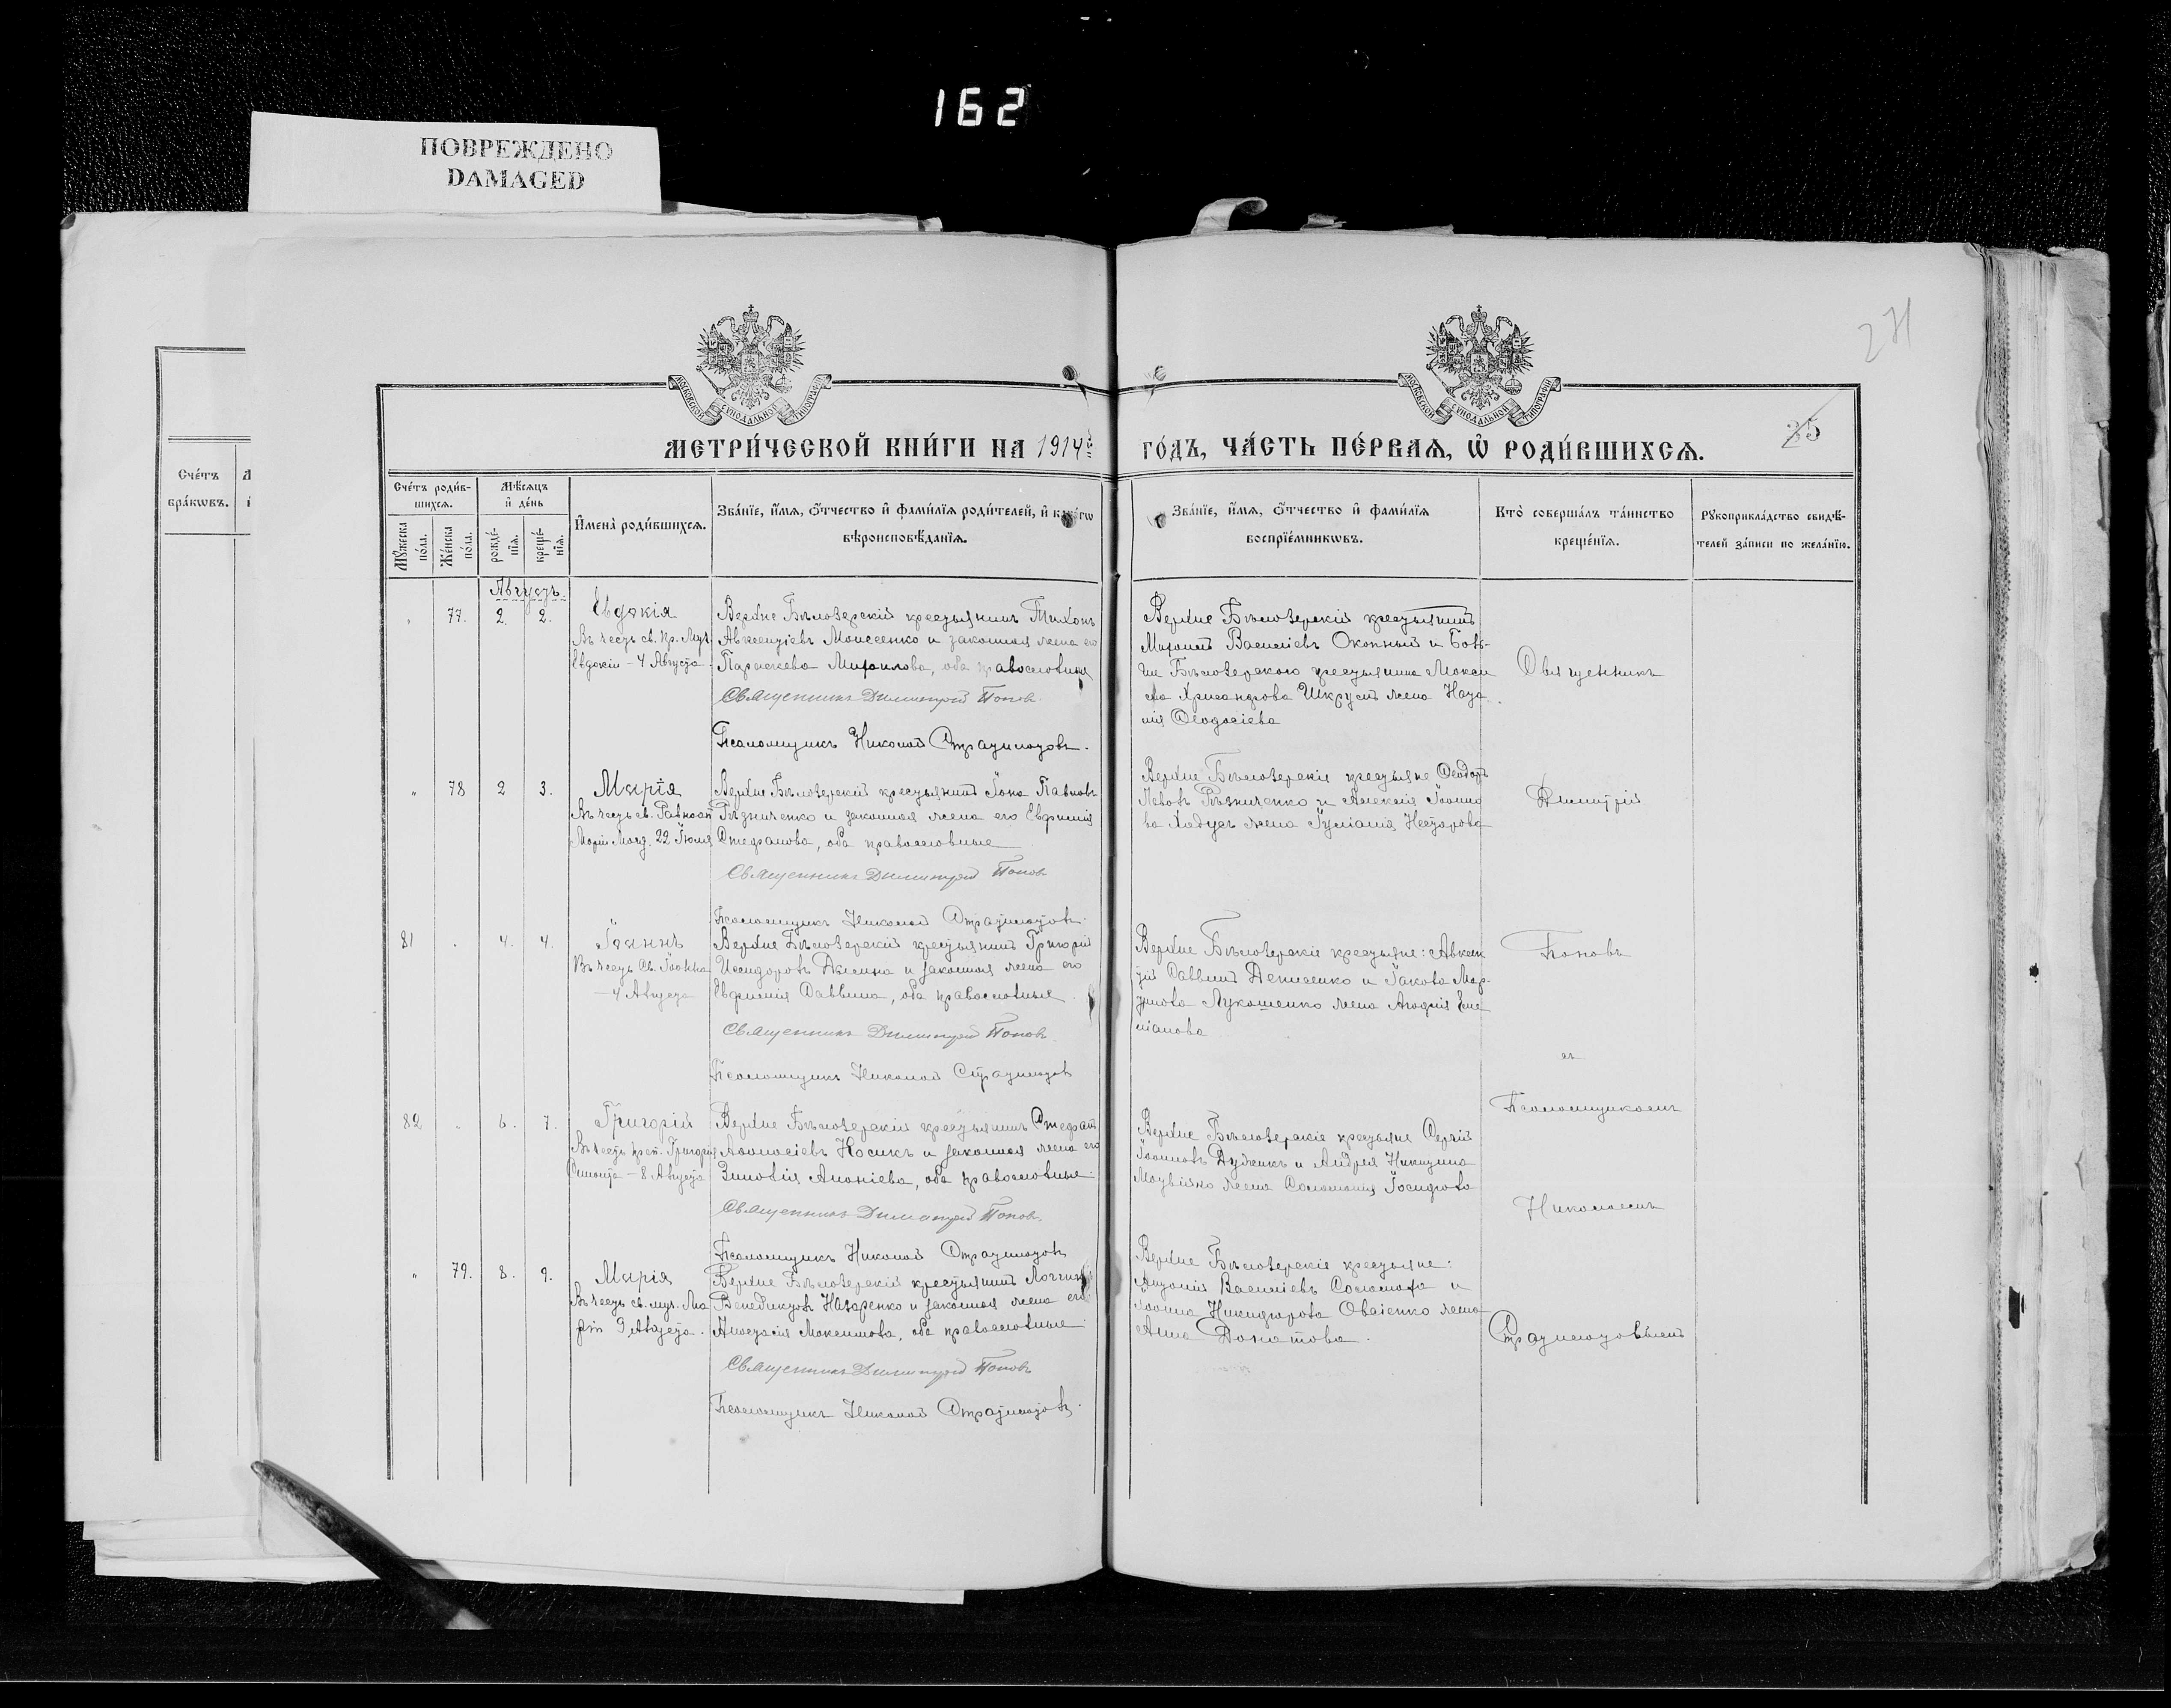 162
ПОВРЕЖДЕНО
DAMAGED
271
35
Сче́тъ
бра́кѡвъ.
МОСКОВСКОЙ СѴНОДАЛЬНОЙ ТИПОГРАФІИ
МОСКОВСКОЙ СѴНОДАЛЬНОЙ ТИПОГРАФІИ
МЕТРИ́ЧЕСКОЙ КНИ́ГИ НА 1914й
ГО́ДЪ, ЧА́СТЬ ПЕ́РВАѦ, Ѡ РОДИ́ВШИХСѦ.
Сче́тъ роди́в-
шихсѧ.
Мꙋ́жеска
по́ла.
Же́нска
по́ла.
Мѣ́сѧцъ
и де́нь
рожде́-
нїѧ.
креще́-
нїѧ.
И҆мена̀ роди́вшихсѧ.
Зва́нїе, и҆́мѧ, ѻ҆́тчество и҆ фами́лїѧ роди́телей, и҆ како́гѡ
вѣроисповѣ́данїѧ.
Зва́нїе, и҆́мѧ, ѻ҆́тчество и҆ фами́лїѧ
воспрїе́мникѡвъ.
Кто̀ соверша́лъ та́инство
креще́нїѧ.
Рꙋкоприкла́дство свидѣ́-
телей за́писи по жела́нїю.
Августъ.
„ 77. 2. 2. Евдокія
Въ честь св. пр. муч.
Евдокіи – 4 Августа
Верхне Бѣлозерскій крестьянинъ Тихонъ
Авксентіевъ Моисеенко и законная жена его
Параскева Михаилова, оба православные
Священникъ Димитрій Поповъ.
Псаломщикъ Николай Стратилатовъ.
Верхне Бѣлозерскій крестьянинъ
Михаилъ Василіевъ Оконный и Бѣло-
Бѣлозерскаго крестьянина Макси
ма Хрисанфова Шкрумъ жена Ната
лія Ѳеодосіева
Священникъ
„ 78 2 3. Марія
Въ честь св. Равноап
Маріи Магд. 22 Іюля
Верхне Бѣлозерскій крестьянинъ Іона Павловъ
Рѣзниченко и законная жена его Евфимія
Стефанова, оба православные
Священникъ Димитрій Поповъ
Псаломщикъ Николай Стратилатовъ.
Верхне Бѣлозерскіе крестьяне Ѳеодоръ
Рѣзниченко и Алексія Іоанно
ва жена Іуліанія Несторова
Димитрій
81 „ 4. 4. Іоаннъ
Въ честь Св. Іоанна
– 4 Августа
Верхне Бѣлозерскій крестьянинъ Григорій
Исидоровъ и законная жена его
Евфимія Саввина, оба православные
Священникъ Димитрій Поповъ
Псаломщикъ Николай Стратилатовъ
Верхне Бѣлозерскіе крестьяне: Авксен
тій Саввинъ и Іакова Мар
тинова Лукашенко жена Агафія Еме
ліанова
Поповъ
съ
82 „ 6. 7. Григорій
Въ честь преп. Григорія
– 8 Августа
Верхне Бѣлозерскій крестьянинъ Стефанъ
Аѳанасіевъ Носикъ и законная жена его
Зиновія оба православные
Священникъ Димитрій Поповъ.
Псаломщикъ Николай Стратилатовъ
Верхне Бѣлозерскіе крестьяне Сергій
Іоанновъ Дудникъ и Андрея Никитина
Матвійко жена Соломонія Іосифова
Псаломщикомъ
Николаемъ
„ 79. 8. 9. Марія
Въ честь св. муч. Ма
ріи 9 Августа.
Верхне Бѣлозерскій крестьянинъ Логгинъ
Венедиктовъ Назаренко и законная жена его
Анастасія Максимова, оба православные
Священникъ Димитрій Поповъ
Псаломщикъ Николай Стратилатовъ.
Верхне Бѣлозерскіе крестьяне:
Антоній Василіевъ Соломаха и
Іоанна Никифорова Овсіенко жена
Анна Донатова.
Стратилатовымъ